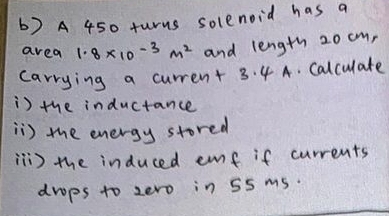 b) A 450 turns solenoid has a
area 1.8 x 10⁻³ m² and length 20 cm,
carrying a current 3.4 A. Calculate
i) the inductance
ii) the energy stored
iii) the induced emf if currents
drops to zero in 55 ms.